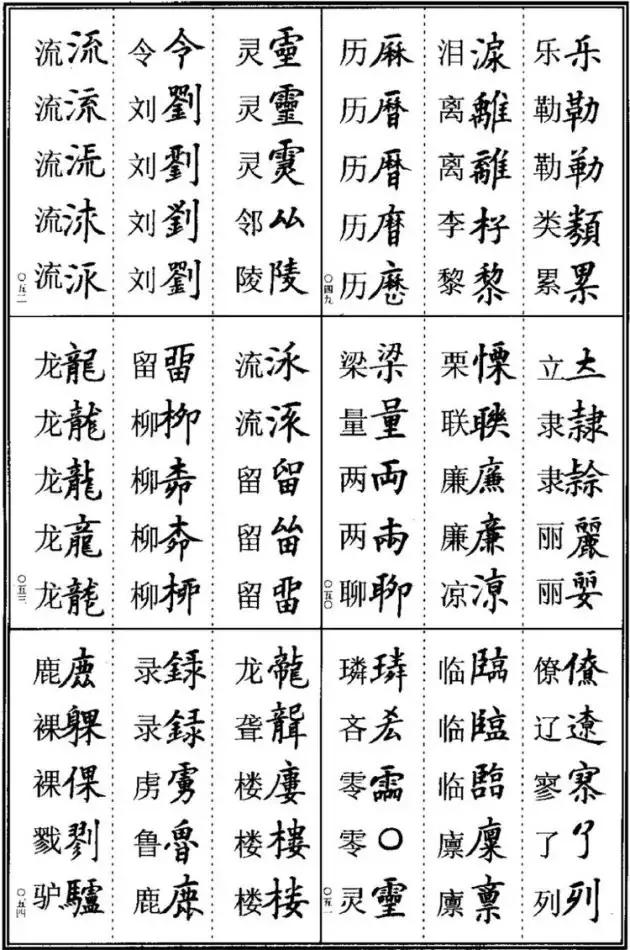 乐乐
勒勒
勒勒
类類
累累
泪淚
离離
离離
李杍
黎黎
历厤
历曆
历暦
历
历
〇四九
立
隶隸
隶
丽麗
丽
栗慄
联聨
廉廉
廉廉
凉涼
梁梁
量量
两両
两
聊聊
〇五〇
僚僚
辽遼
寥寮
了了
列列
临臨
临臨
临臨
廪廩
廪禀
璘璘
吝
零霝
零〇
灵靈
〇五一
灵霊
灵靈
灵
邻厸
陵陵
令令
刘劉
刘劉
刘劉
刘劉
流流
流流
流
流
流
〇五二
流
流
留留
留畄
留畱
留
柳栁
柳
柳
柳桺
龙龍
龙龍
龙龍
龙龍
龙龍
〇五三
龙龍
聋聾
楼廔
楼樓
楼楼
录録
录録
虏虜
鲁魯
鹿
鹿鹿
裸躶
裸倮
戮剹
驴驢
〇五四